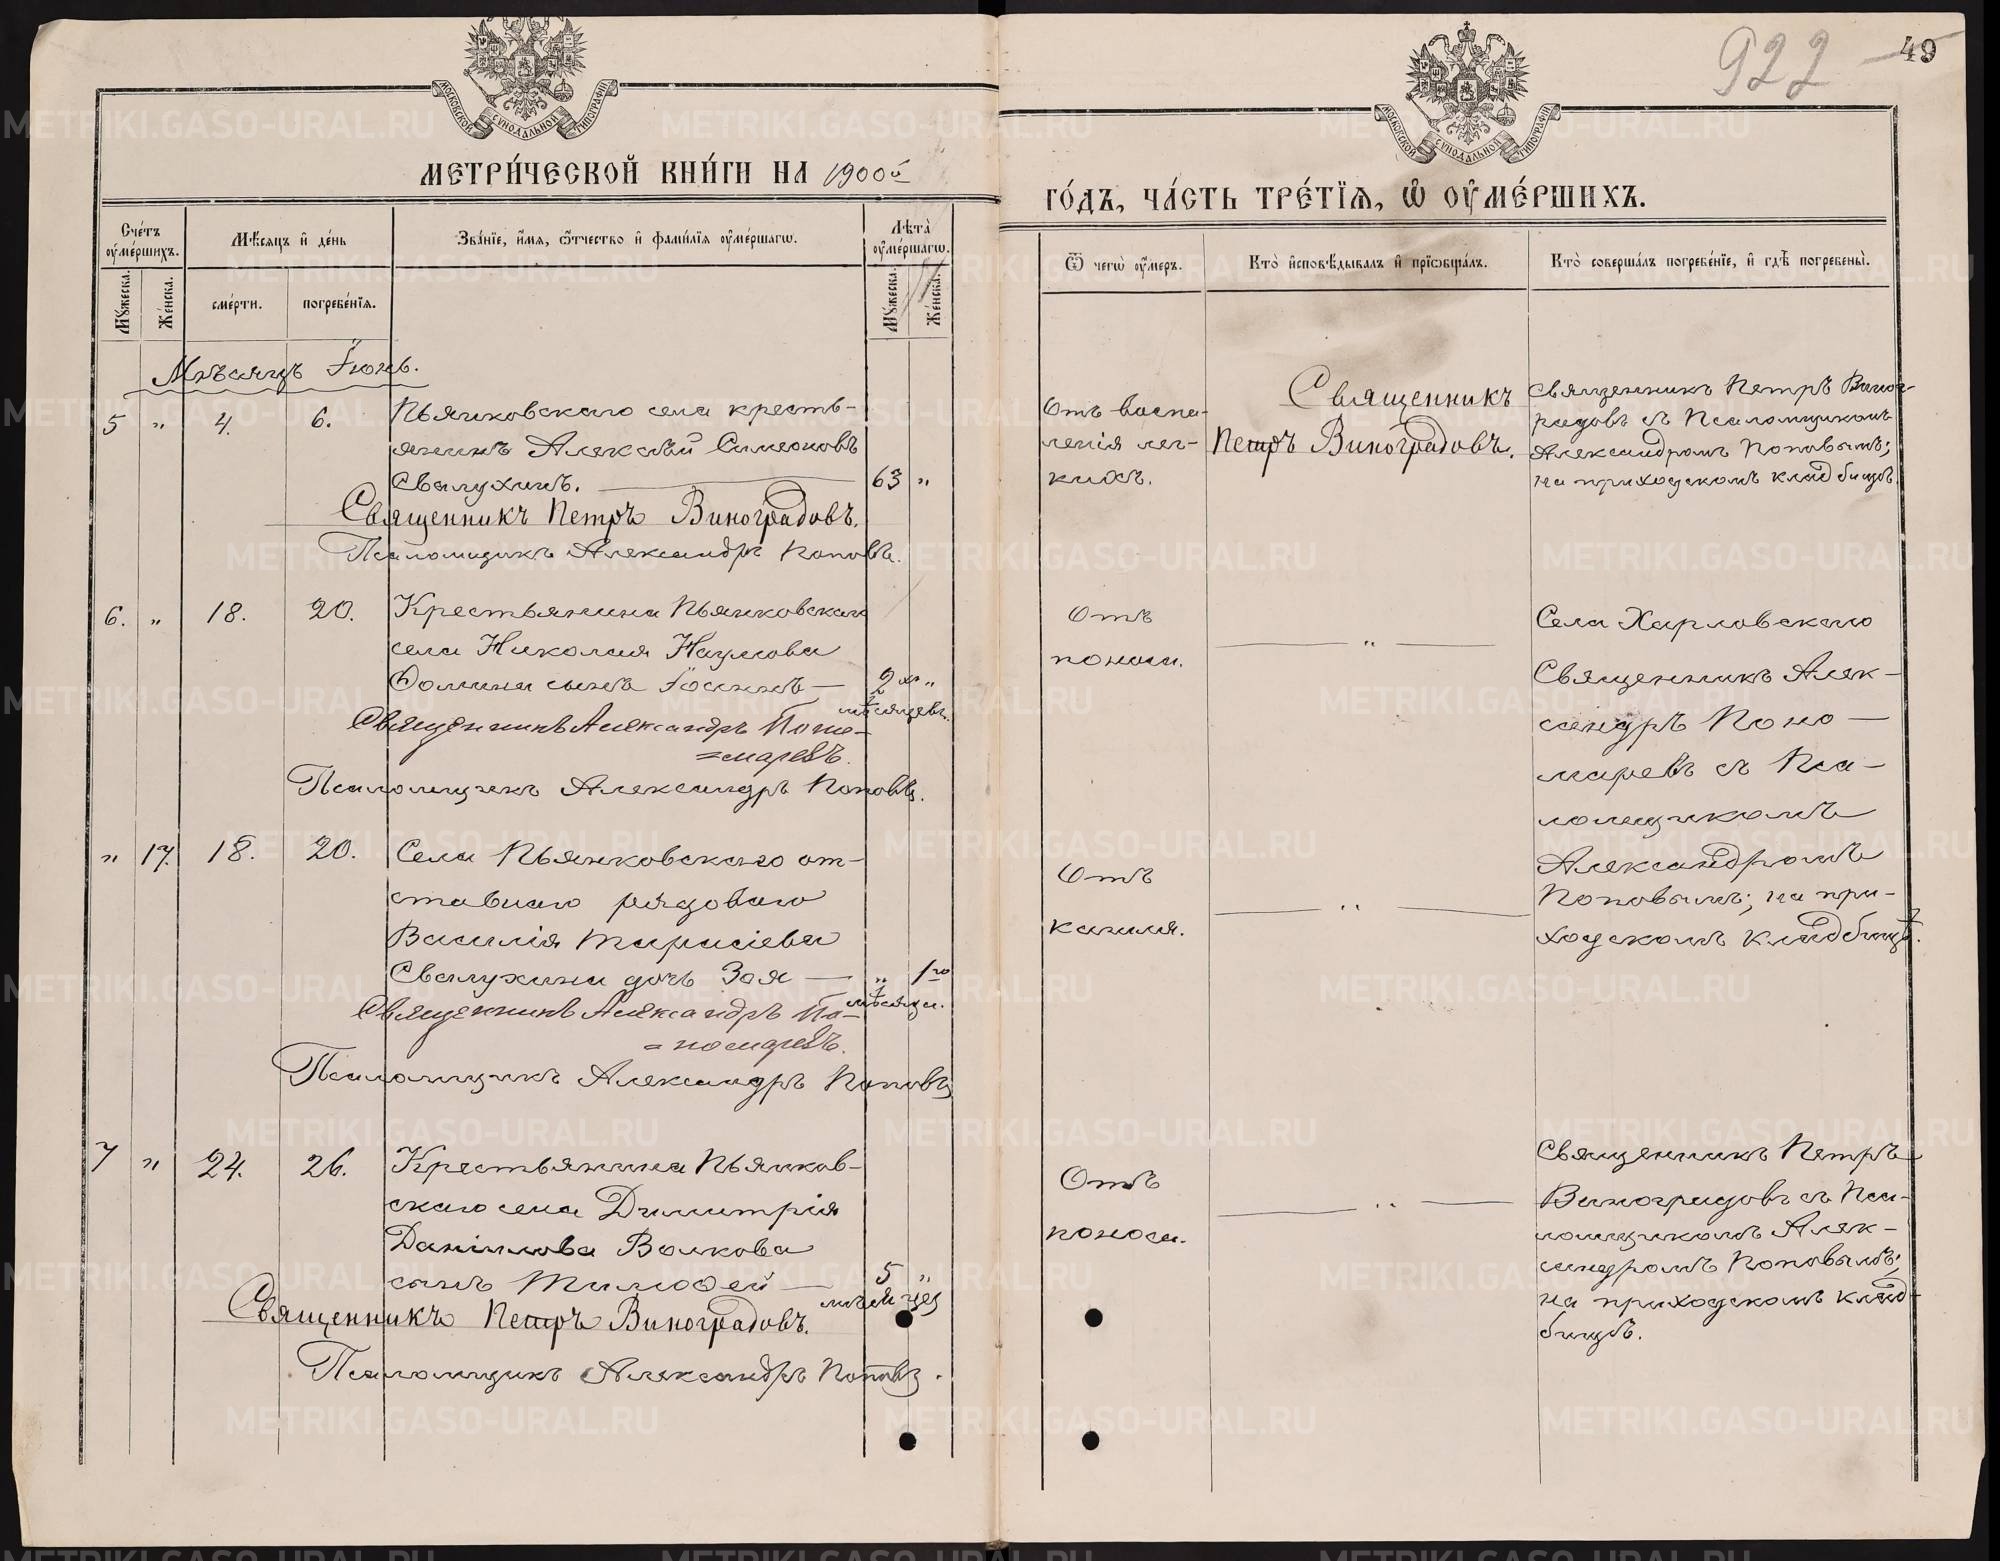 922 49
МОСКОВСКОЙ СѴНОДАЛЬНОЙ ТИПОГРАФІИ
МОСКОВСКОЙ СѴНОДАЛЬНОЙ ТИПОГРАФІИ
МЕТРИ́ЧЕСКОЙ КНИ́ГИ НА 1900й
ГО́ДЪ, ЧА́СТЬ ТРЕ́ТІѦ, Ѡ ОУ҆МЕ́РШИХЪ.
Сче́тъ оу҆ме́ршихъ.
Мꙋ́жеска.
Же́нска.
Мѣ́сѧцъ и҆ де́нь
сме́рти.
погребе́нїѧ.
Зва́нїе, и҆́мѧ, ѻ҆́тчество и҆ фами́лїѧ оу҆ме́ршагѡ.
Лѣ́та оу҆ме́ршагѡ.
Мꙋ́жеска.
Же́нска.
Ѿ чегѡ̀ оу҆́меръ.
Кто̀ и҆сповѣ́дывалъ и҆ прїѡбща́лъ.
Кто̀ соверша́лъ погребе́нїе, и҆ гдѣ̀ погребены̀.
Мѣсяцъ Іюнь.
5 " 4. 6.
Пьянковскаго села кресть-
янинъ Алексѣй Симеоновъ
Свалухинъ. 63 "
Священникъ Петръ Виноградовъ.
Псаломщикъ Александръ Поповъ.
Отъ воспа-
ленія лег-
кихъ.
Священникъ
Петръ Виноградовъ.
Священникъ Петръ Виног-
радовъ съ Псаломщикомъ
Александромъ Поповымъ;
на приходскомъ кладбищѣ.
6. " 18. 20.
Крестьянина Пьянковскаго
села Николая Наумова
Ѳомина сынъ Іоаннъ — 2хъ "
мѣсяцевъ.
Священникъ Александръ Поно-
=маревъ.
Псаломщикъ Александръ Поповъ.
Отъ
поноса.
"
Села Харловскаго
Священникъ Алек-
сандръ Поно-
маревъ съ Пса-
ломщикомъ
Александромъ
Поповымъ; на при-
ходскомъ кладбищѣ.
" 17. 18. 20.
Села Пьянковскаго от-
ставнаго рядоваго
Василія Тарасіева
Свалухина дочь Зоя — " 1го
мѣсяца.
Священникъ Александръ По-
=номаревъ.
Псаломщикъ Александръ Поповъ
Отъ
кашля.
"
7 " 24. 26.
Крестьянина Пьянков-
скаго села Димитрія
Даніилова Волкова
сынъ Тимоѳей — 5 "
мѣсяцев
Священникъ Петръ Виноградовъ.
Псаломщикъ Александръ Поповъ.
Отъ
поноса.
"
Священникъ Петръ
Виноградовъ съ Пса-
ломщикомъ Алек-
сандромъ Поповымъ;
на приходскомъ клад-
бищѣ.
METRIKI.GASO-URAL.RU